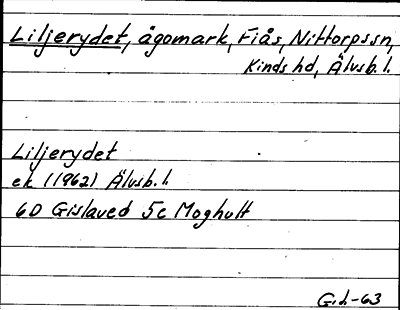 Liljerydet, ägomark, Fiås, Nittorpssn,
Kinds hd, Älvsb. l.
Liljerydet
ek (1962) Älvsb. l.
6D Gislaved 5c Moghult
G.h-63